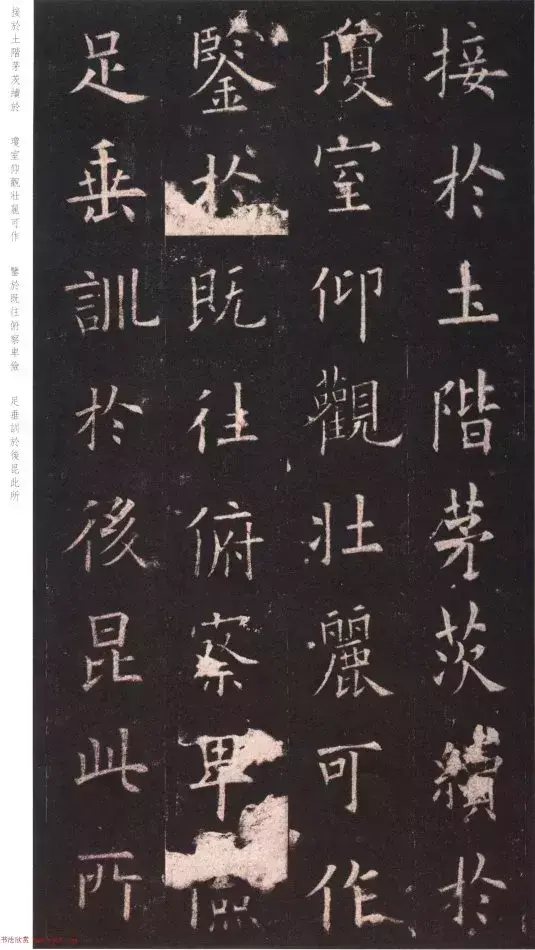 接於土階茅茨續於
瓊室仰觀壯麗可作
鑒於既往俯察卑儉
足垂訓於後昆此所
接於土階茅茨續於 瓊室仰觀壯麗可作 鑒於既往俯察卑儉 足垂訓於後昆此所
书法欣赏